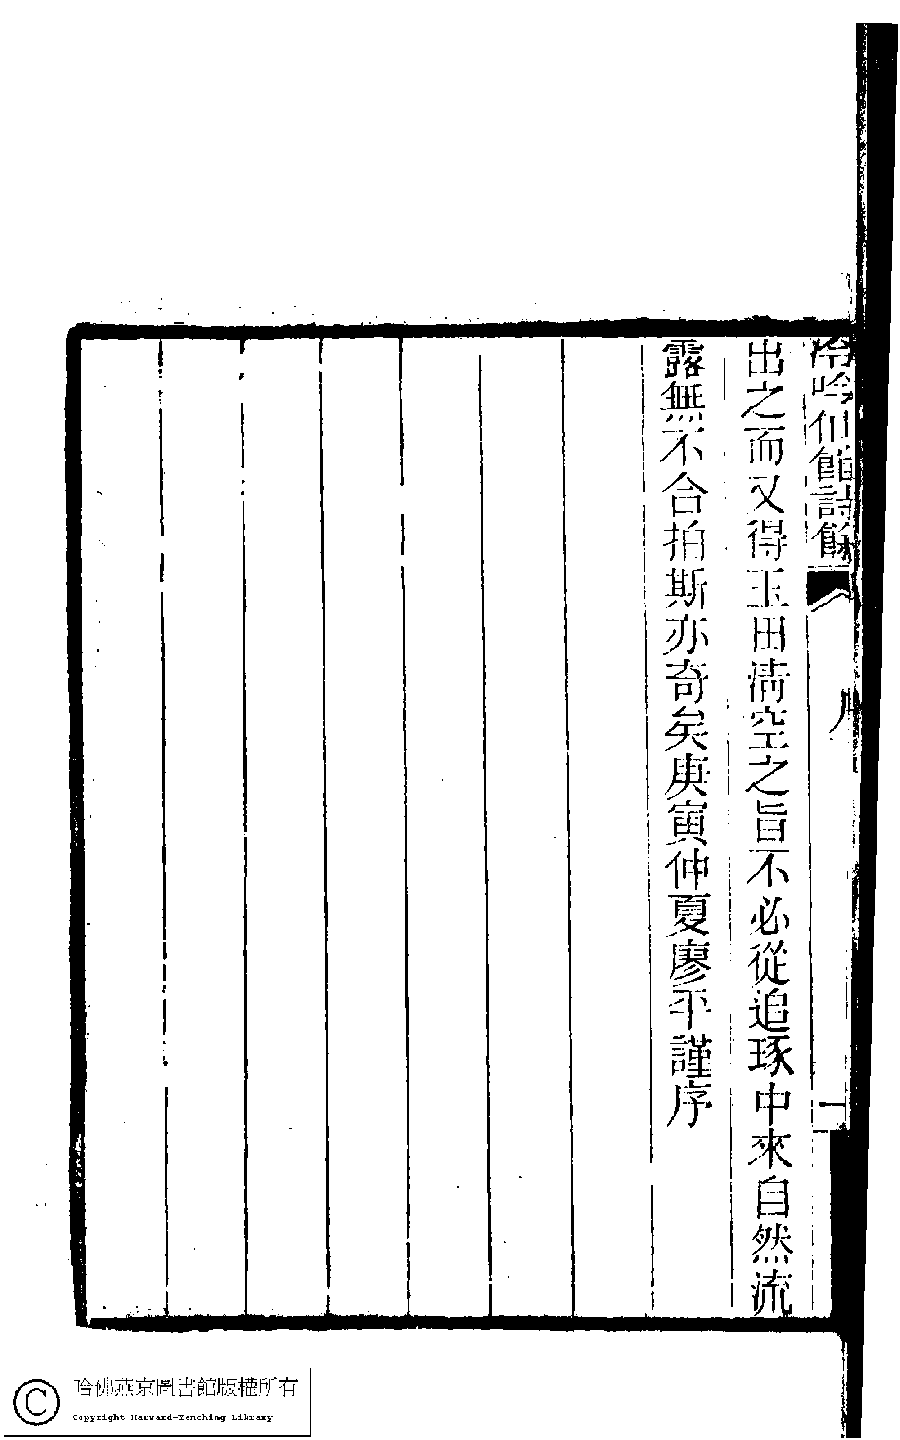 冷吟仙館詩餘
一
出之而又得玉田清空之旨不必從追琢中來自然流
露無不合拍斯亦奇矣庚寅仲夏廖平謹序
哈佛燕京圖書館版權所有
Copyright Harvard-Yenching Library